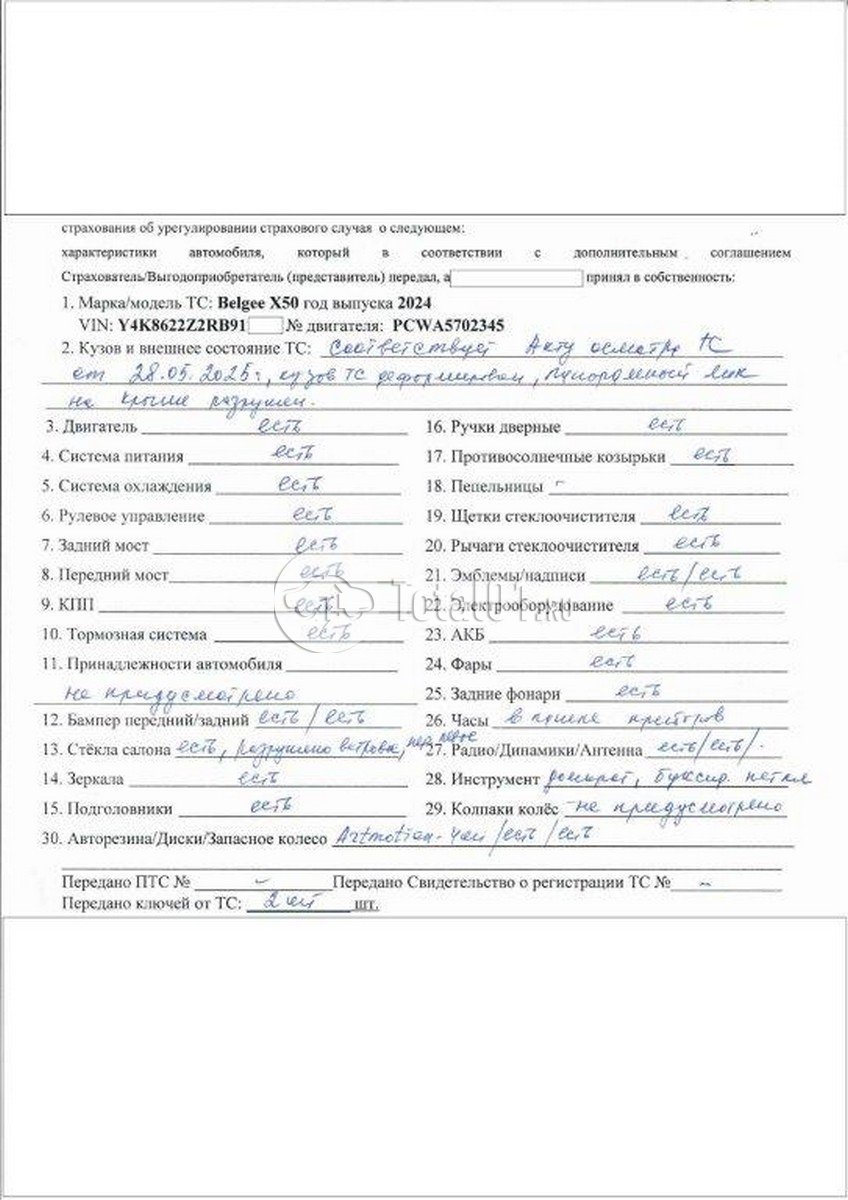 страхования об урегулировании страхового случая о следующем:
характеристики автомобиля, который в соответствии с дополнительным соглашением
Страхователь/Выгодоприобретатель (представитель) передал, а принял в собственность:
1. Марка/модель ТС: Belgee X50 год выпуска 2024
VIN: Y4K8622Z2RB91 № двигателя: PCWA5702345
2. Кузов и внешнее состояние ТС: Соответствует Акту осмотра ТС
от 28.05.2025г, кузов ТС деформирован, панорамный люк
на крыше разрушен.
3. Двигатель есть
4. Система питания есть
5. Система охлаждения есть
6. Рулевое управление есть
7. Задний мост есть
8. Передний мост есть
9. КПП есть
10. Тормозная система есть
11. Принадлежности автомобиля
не предусмотрено
12. Бампер передний/задний есть/есть
13. Стёкла салона есть, разрушено ветровое, пер. левое
14. Зеркала есть
15. Подголовники есть
16. Ручки дверные есть
17. Противосолнечные козырьки есть
18. Пепельницы -
19. Щетки стеклоочистителя есть
20. Рычаги стеклоочистителя есть
21. Эмблемы/надписи есть/есть
22. Электрооборудование есть
23. АКБ есть
24. Фары есть
25. Задние фонари есть
26. Часы в приборов
27. Радио/Динамики/Антенна есть/есть/-
28. Инструмент домкрат, буксир. петля
29. Колпаки колёс не предусмотрено
30. Авторезина/Диски/Запасное колесо Artmotion-4шт/есть/есть
Передано ПТС № - Передано Свидетельство о регистрации ТС № -
Передано ключей от ТС: 2 шт шт.
Total01.ru